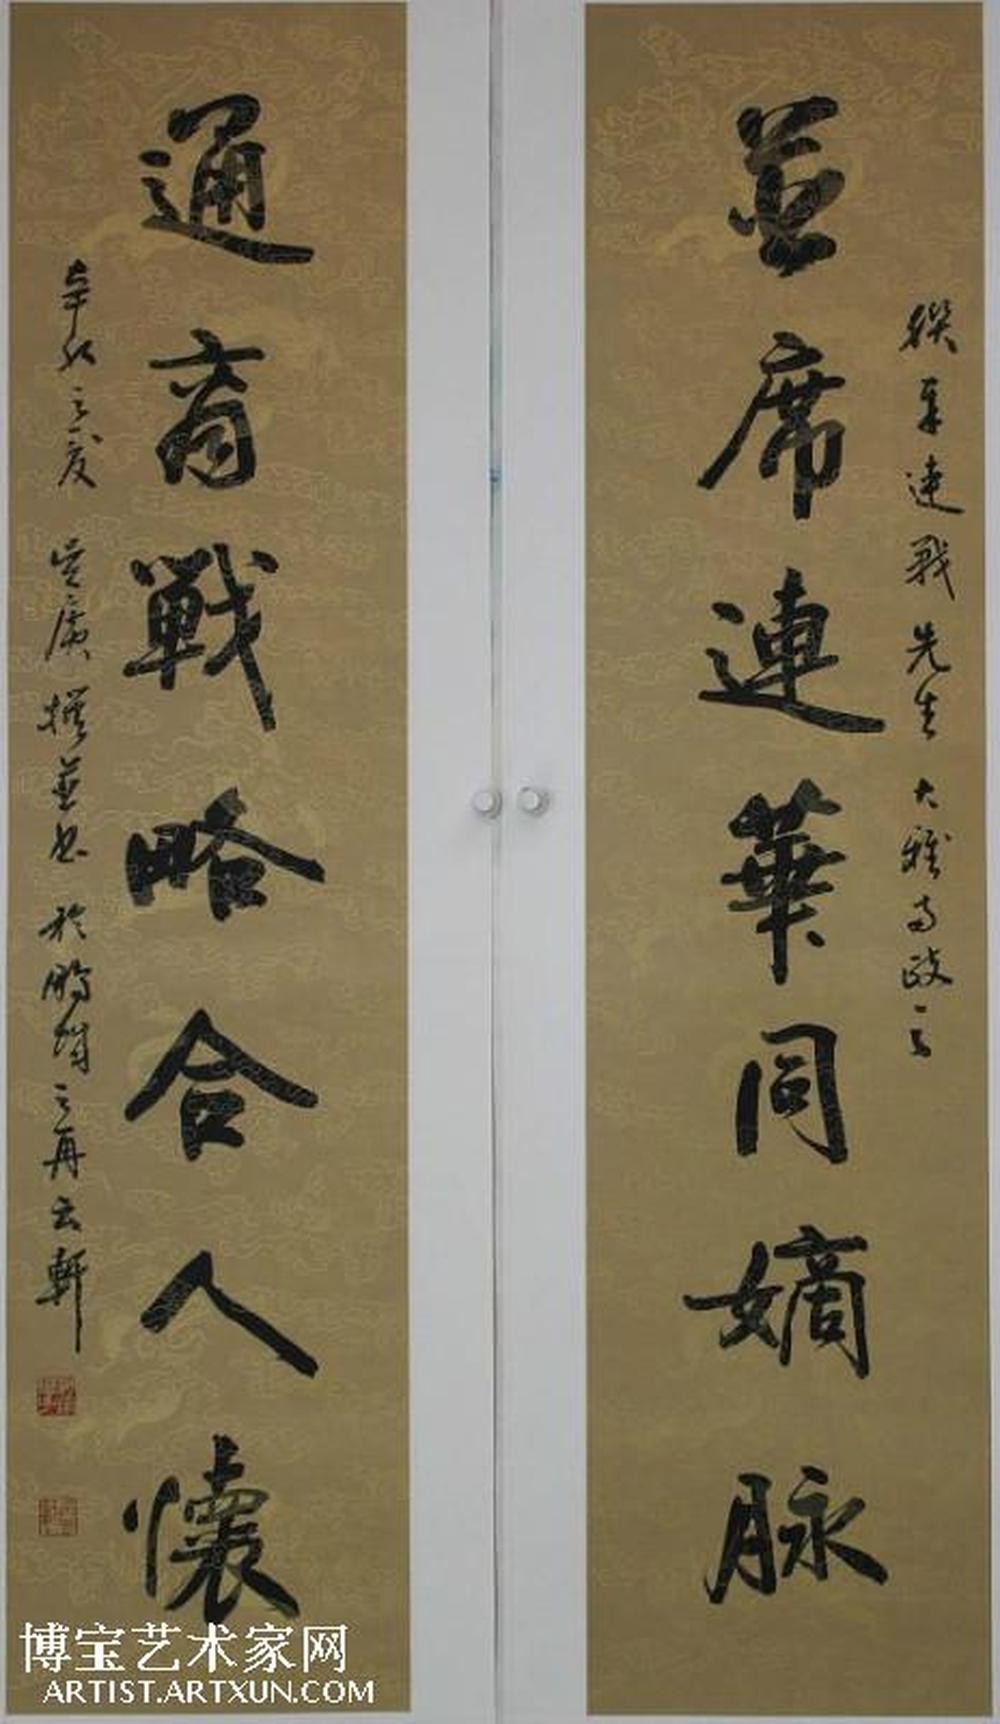 並席連華同嫡脉
連戰先生 大雅 政之
通商戰略合人懷
辛 之 撰並书於鵬城之 云軒
博宝艺术家网
ARTIST.ARTXUN.COM